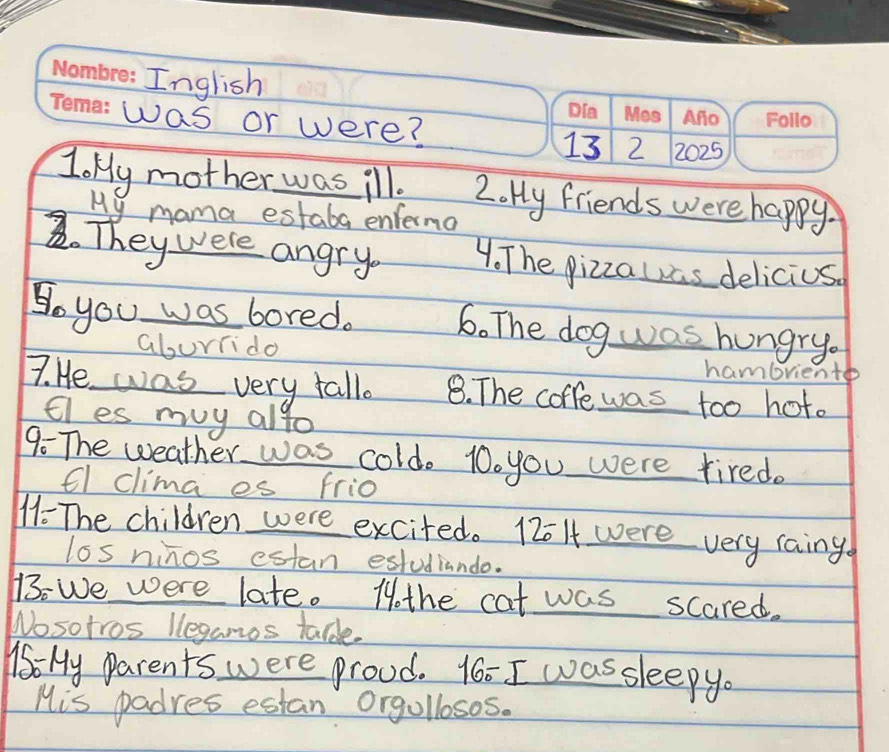 Nombre: Inglish
Tema: Was or were?
Día Mes Año Folio
13 2 2025
1. My mother was ill. 2. My friends were happy.
My mama estaba enferma
3. They were angry. 4. The pizza was delicius.
5. you was bored. 6. The dog was hungry.
aburrido hambriento
7. He was very tall. 8. The coffe was too hot.
El es muy alto
9.- The weather was cold. 10. you were tired.
El clima es frio
11.- The children were excited. 12.- It were very rainy.
los niños estan estudiando.
13.- We were late. 14. the cat was scared.
Nosotros llegamos tarde.
15.- My parents were proud. 16.- I was sleepy.
Mis padres estan orgullosos.